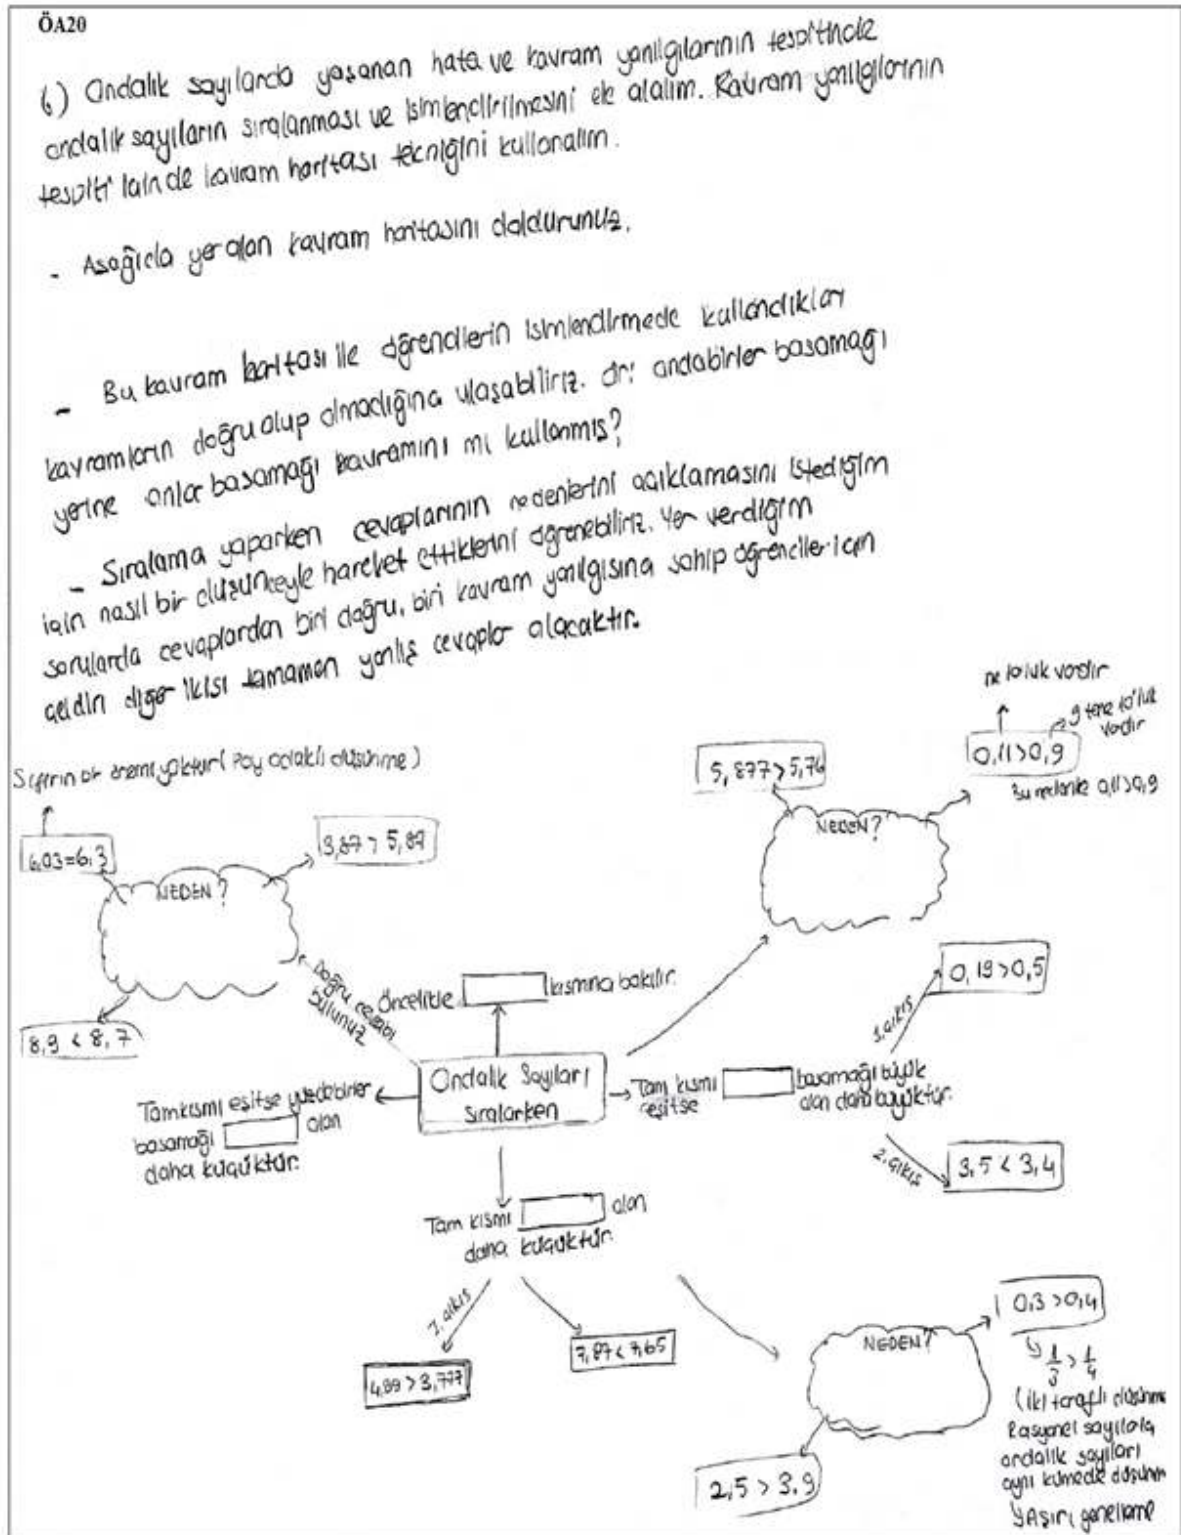 ÖA20
6) Ondalık sayılarda yaşanan hata ve kavram yanılgılarının tespitinde
ondalık sayıların sıralanması ve isimlendirilmesini ele alalım. Kavram yanılgılarının
tespiti için de kavram haritası tekniğini kullanalım.
- Aşağıda yer alan kavram haritasını doldurunuz.
- Bu kavram haritası ile öğrencilerin isimlendirmede kullandıkları
kavramların doğru olup olmadığına ulaşabiliriz. ör: ondabirler basamağı
yerine onlar basamağı kavramını mı kullanmış?
- Sıralama yaparken cevaplarının nedenlerini açıklamasını istediğim
için nasıl bir düşünceyle hareket ettiklerini öğrenebiliriz. Yer verdiğim
sorularda cevaplardan biri doğru, biri kavram yanılgısına sahip öğrenciler için
geldin diğer ikisi tamamen yanlış cevaplar olacaktır.
ne 10'luk vardır
9 tane 10'luk
vardır
0,11 > 0,9
Bu nedenle 0,11 > 0,9
5,877 > 5,76
NEDEN?
Sıfırın bir önemi yoktur (Pay odaklı düşünme)
6,03 = 6,3
3,87 > 5,87
NEDEN?
8,9 < 8,7
Doğru cevabı
bulunuz
Öncelikle kısmına bakılır.
0,19 > 0,5
1. çıkış
Ondalık Sayıları
sıralarken
Tam kısmı eşitse basamağı büyük
olan daha büyüktür.
2. çıkış
3,5 < 3,4
Tam kısmı eşitse yüzdebirler
basamağı olan
daha küçüktür.
Tam kısmı olan
daha küçüktür.
1. çıkış
4,99 > 3,777
7,87 < 7,65
NEDEN?
0,3 > 0,4
1/3 > 1/4
(İki taraflı düşünme
Rasyonel sayılarla
ondalık sayıları
aynı kümede düşünme
Aşırı genelleme
2,5 > 3,9